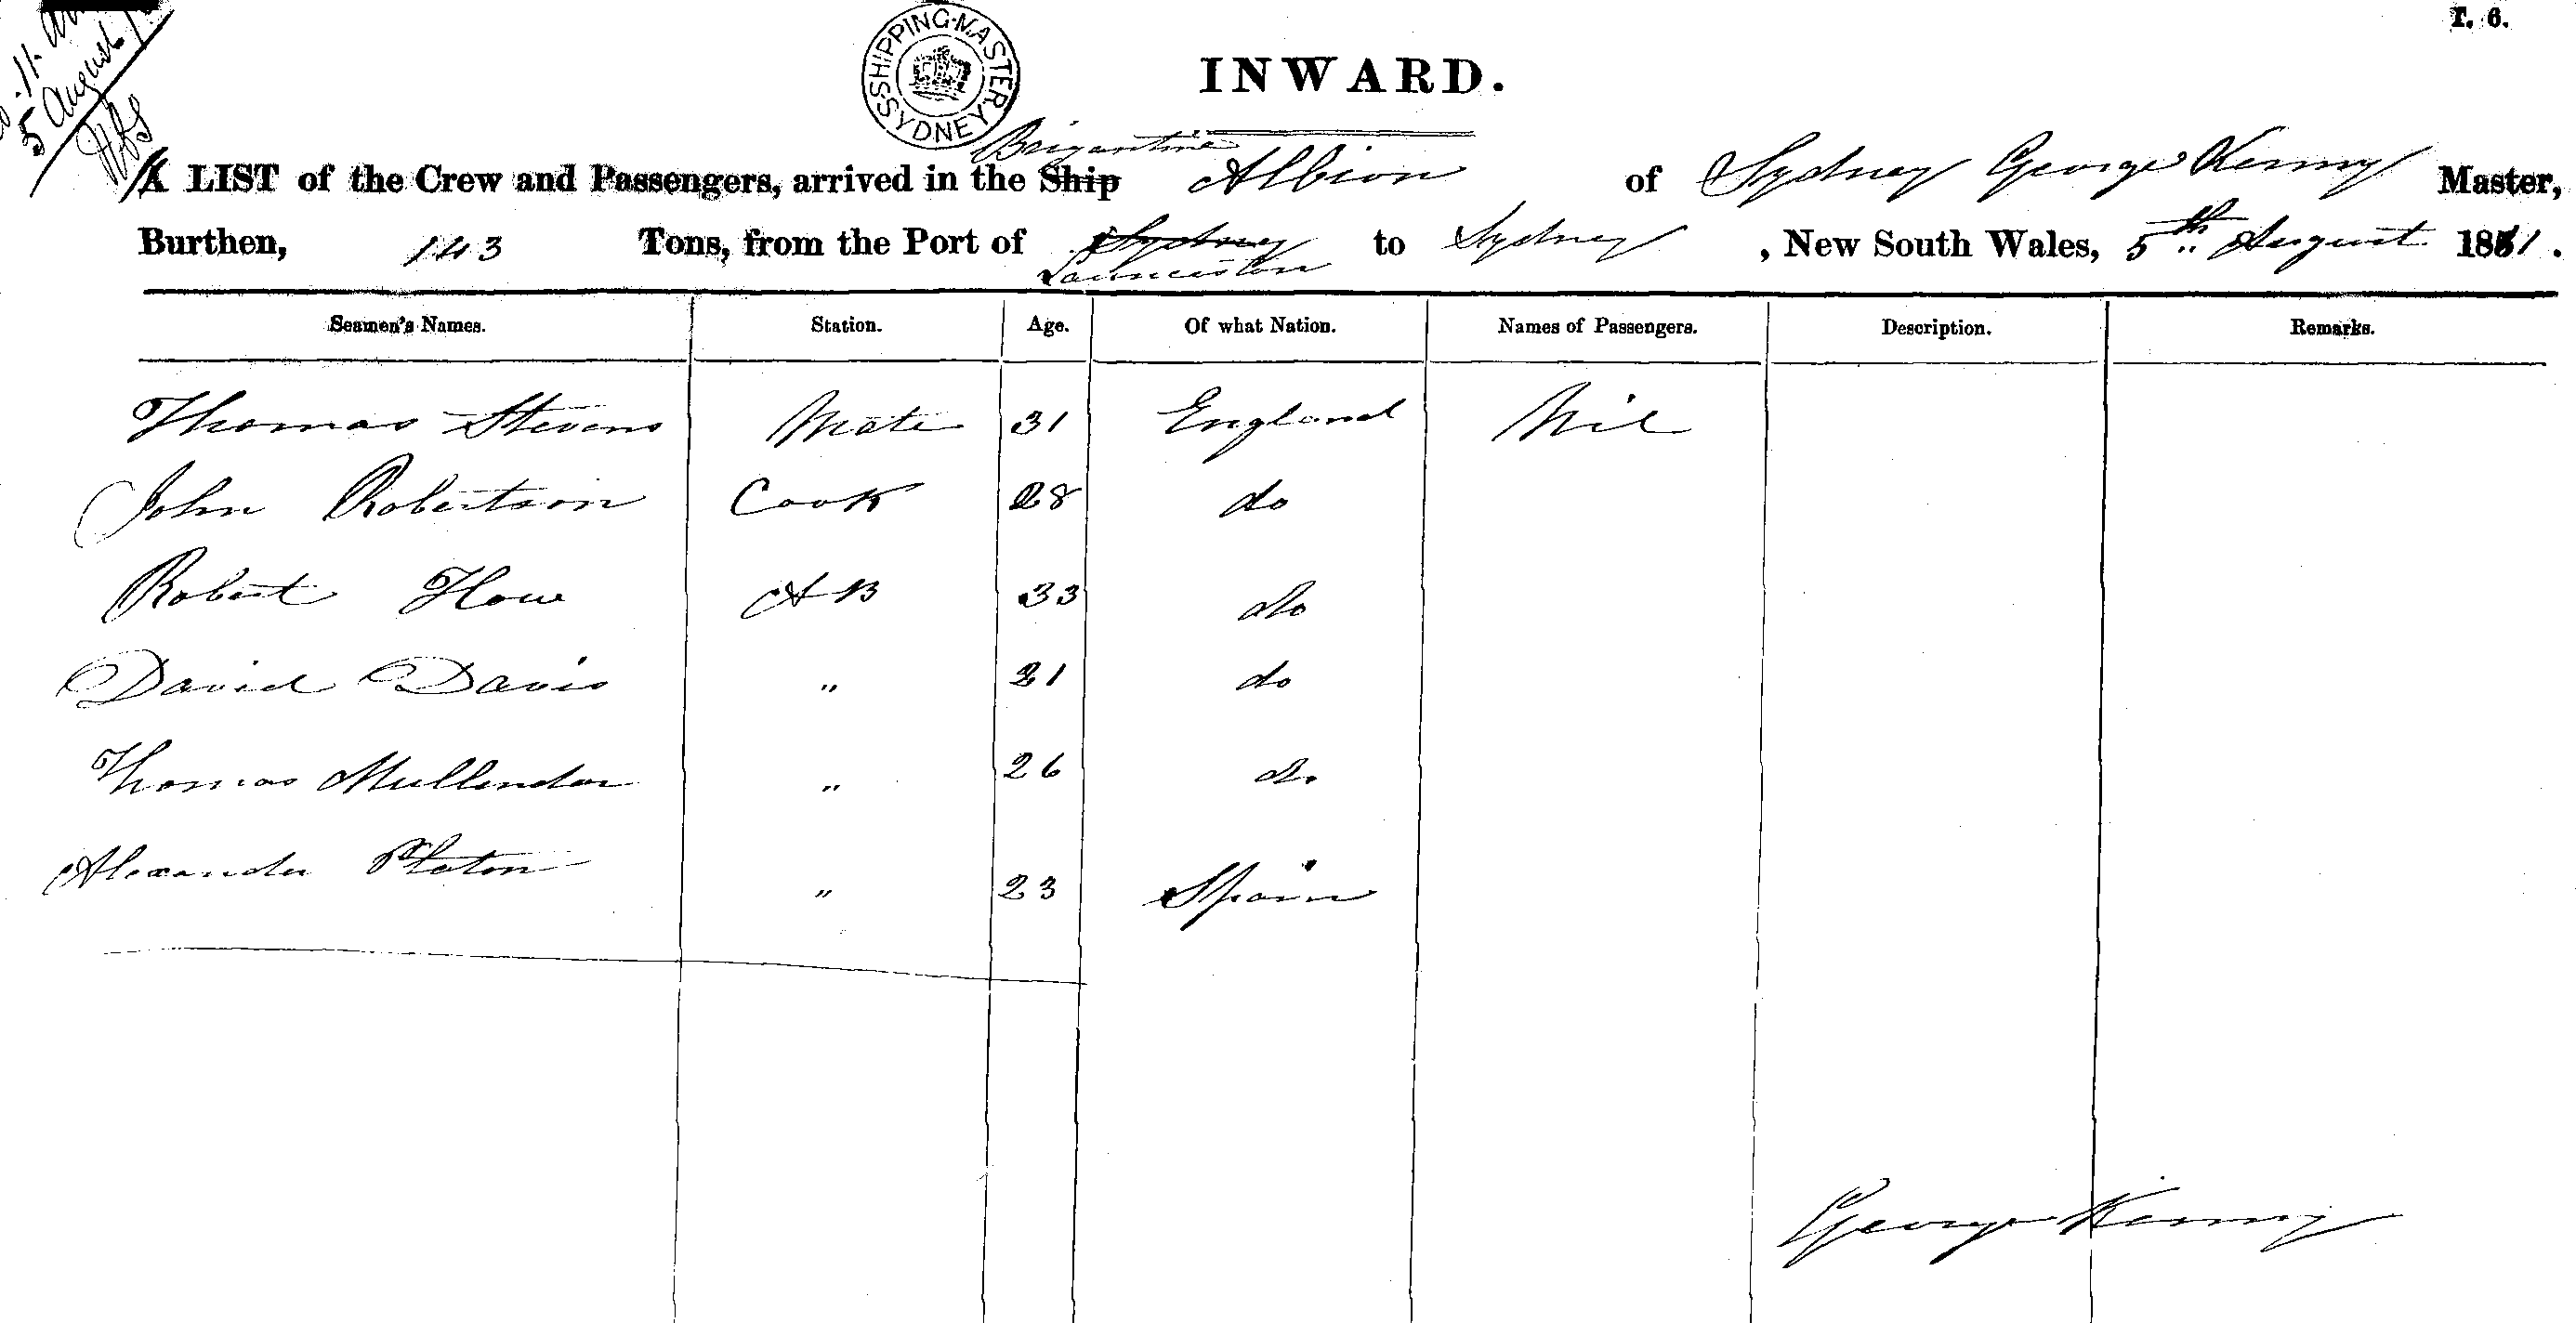 T. 6.
11. am
5 August
SHIPPING MASTER. SYDNEY.
INWARD.
Brigantine
A LIST of the Crew and Passengers, arrived in the Ship Albion of Sydney George Kenny Master,
Burthen, 143 Tons, from the Port of Sydney to Sydney, New South Wales, 5th August 1881.
Launceston
Seamen's Names. Station. Age. Of what Nation. Names of Passengers. Description. Remarks.
Thomas Stevens Mate 31 England Nil
John Robertson Cook 28 do
Robert Howe AB 33 do
David Davis " 21 do
Thomas Mullender " 26 do
Alexander Platon " 23 Spain
George Kenny